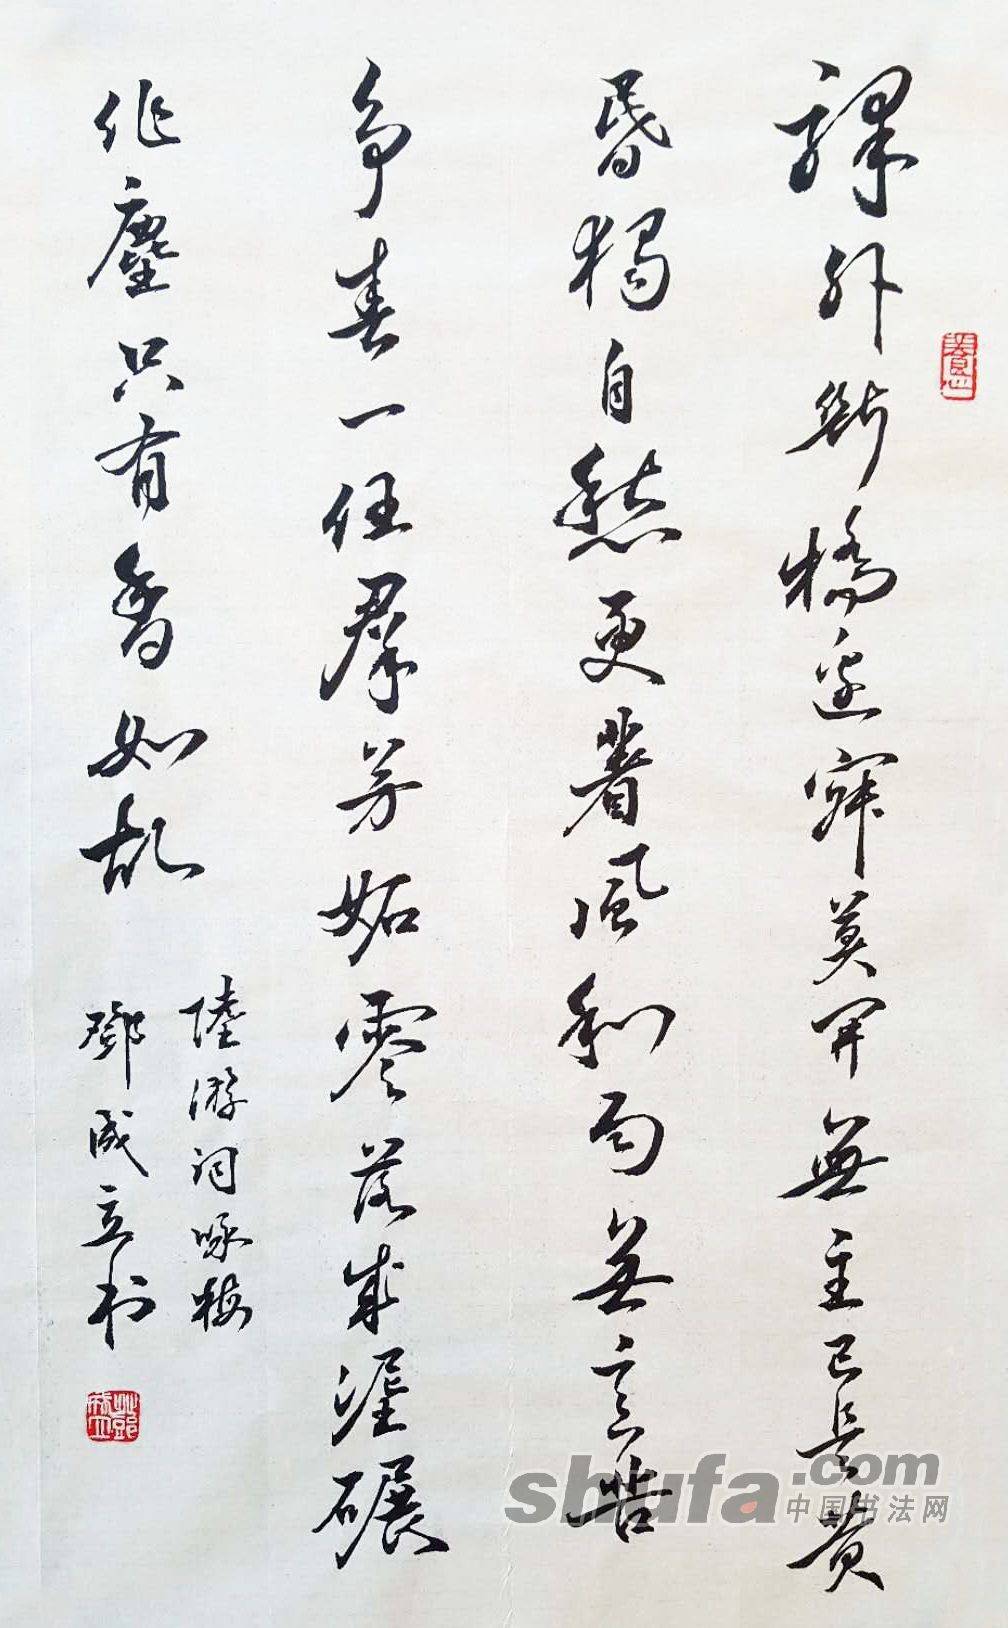 驛外斷橋邊寂莫開無主已是黃
昏獨自愁更著風和雨無意苦
爭春一任羣芳妬零落成泥碾
作塵只有香如故
陸游詞咏梅
鄧成立书
養心
shufa.com
中国书法网